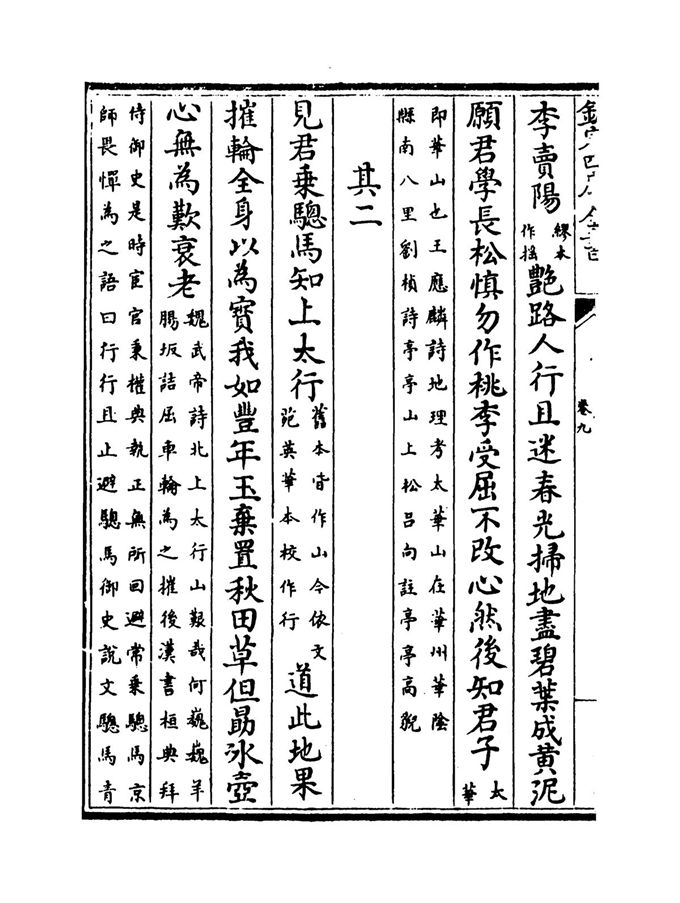 卷九
李賣陽繆本作揺艷路人行且迷春光掃地盡碧葉成黄泥
願君學長松慎勿作桃李受屈不改心然後知君子太華
即華山也王應麟詩地理考太華山在華州華隂
縣南八里劉楨詩亭亭山上松吕向註亭亭高貌
其二
見君乗驄馬知上太行舊本皆作山今依文苑英華本校作行道此地果
摧輪全身以為寳我如豐年玉棄置秋田草但勗冰壺
心無為歎衰老魏武帝詩北上太行山艱哉何巍巍羊腸坂詰屈車輪為之摧後漢書桓典拜
侍御史是時宦官秉權典執正無所回避常乗驄馬京
師畏憚為之語曰行行且止避驄馬御史說文驄馬青